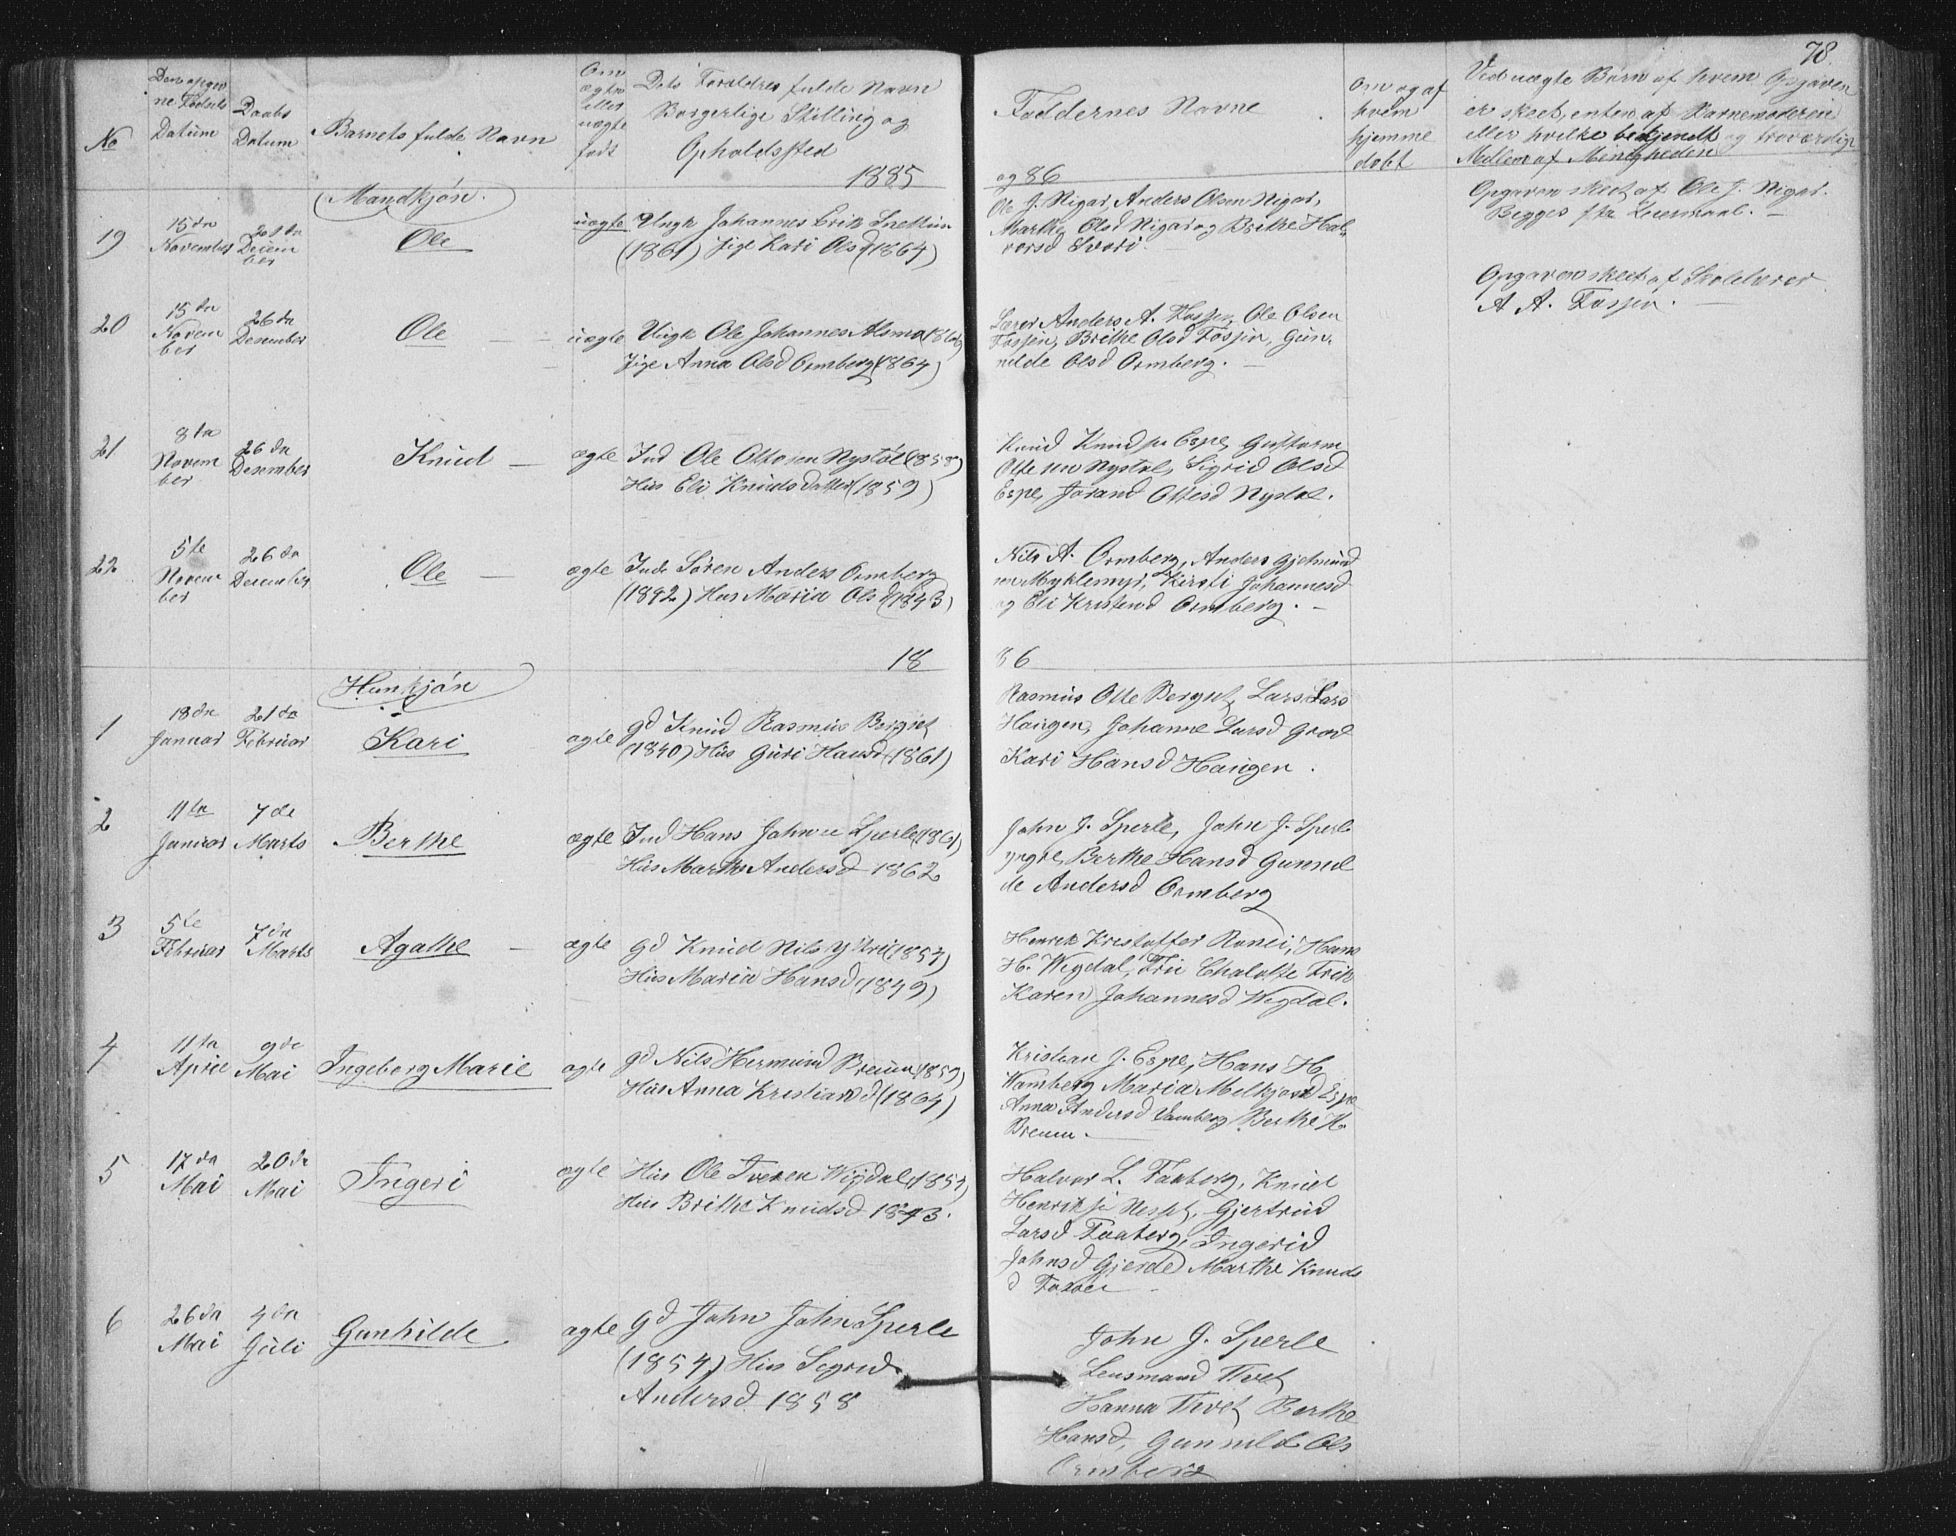 78.
No
Datum
Daabs
Datum
Barnets fulde Navn
Om
ægte
eller
uægte
født
Dets Forældres fulde Navn
Borgerlige Stilling og
Opholdssted
1885
Faddernes Navne
og 86
Om og af
hvem
hjemme
døbt
Ved uægte Børn af hvem Opgaven
er skeet, enten af Barnemoderen
eller hvilke bekjendt og troværdige
Medlem af Menigheden
Mandkjøn.
19
15de
November
26de
Decem
ber
Ole
uægte
Ungk Johannes Erik
(1861) Pige Kari Olsd (1864)
Ole J. Nigar, Anders Olsen Nigar,
Marthe Olsd Nigar og Brithe Hal
vorsd
Opgaven skeet af Ole J. Nigar.
Begges fte Leiermaal. —
20
15de
Novem
ber
26de
December
Ole
uægte
Ungk Ole Johannes
Pige Anna Olsd Ormberg (1864)
Lærer Anders A. Fossen, Ole Olsen
Fossen, Brithe Olsd Fossen, Gun
nilde Olsd Ormberg. —
Opgaven skeet af Skolelærer
A. A. Fossen. —
21
8de
Novem
ber
26de
December
Knud —
ægte
Ind Ole Ottosen Nystøl (1858)
Hus Eli Knudsdatter (1859)
Knud Knuds Espe, Guttorm
Otte Nystøl, Sigrid Olsd
Espe, Jorand Ottesd Nystøl.
22
5te
Novem
ber
26de
December
Ole —
ægte
Inds Søren Anders Ormberg
(1842) Hus Maria Olsd (1843)
Nils A. Ormberg, Anders Gjelmund
Myklemyr, Kirsti Johannesd
og Eli Kristensd Ormberg. —
18
86
Hunkjøn
1
18de
Januar
21de
Februar
Kari
ægte
gd Knud Rasmus Bergset
(1840) Hus Guri Hansd (1861)
Rasmus Otte Bergset, Lars Lars
Haugen, Johanne Larsd
Kari Hansd Haugen.
2
11te
Januar
7de
Marts
Berthe
ægte
Ind Hans John Sperle (1861)
Hus Marthe Andersd 1862
John J. Sperle, John J. Sperle
yngre, Berthe Hansd Gunnil
de Andersd Ormberg
3
5te
Februar
7de
Marts
Agathe —
ægte
gd Knud Nils Ytri (1857)
Hus Maria Hansd (1849)
Henrik Kristoffer Ronei, Hans
H. Wigdal, Fru Chalotte Frik
Karen Johannesd Wigdal.
4
11te
April
9de
Mai
Ingeborg Marie
ægte
gd Nils Hermund Breum (1859)
Hus Anna Kristiansd (1864)
Kristian J. Espe, Hans H.
Wamberg Maria Melkjorsd Espe
Anna Andersd Vamberg Berthe H.
Breum. —
5
17de
Mai
20de
Mai
Ingeri
ægte
Hus Ole Iversen Wigdal (1857)
Hus Brithe Knudsd 1843.
Halvor L. Faaberg, Knud
Henrikse Nesset, Gjertrud
Larsd Faaberg, Ingerid
Johnsd Gjerde Marthe Knuds
d
6
26de
Mai
4de
Juli
Gunhilde
ægte
gd John John Sperle
(1854) Hus Sigrid
Andersd 1858
John J. Sperle
Lensmand Tvet
Hanna Tvet, Berthe
Hansd, Gunnild Ols
Ormberg